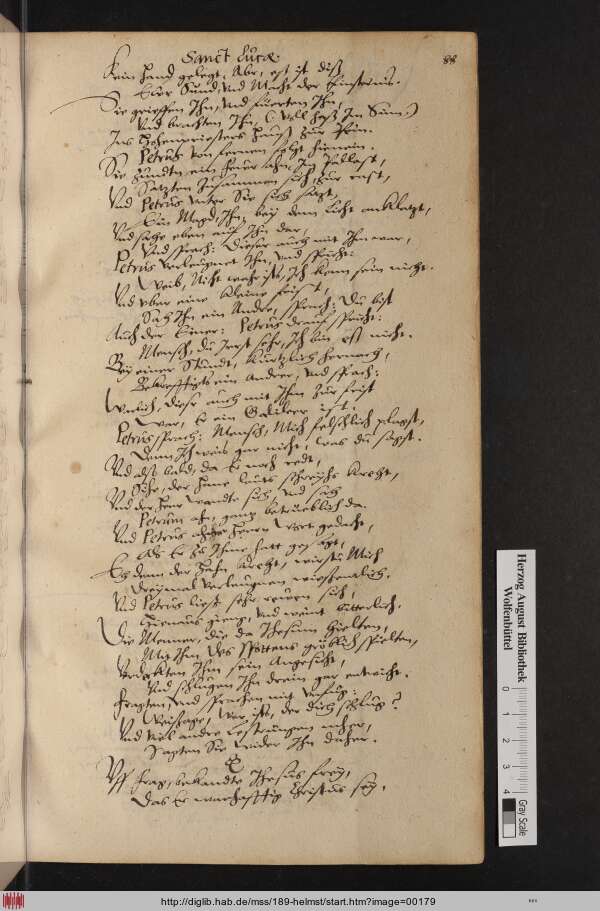 Sanct Lucæ.
88
Kein Hand gelegt. Aber, est ist diß
Ewr Stund, und Macht der Finsternis.
Sie grieffen Ihn, und füerten Ihn,
Und brachten Ihn, (Voll heß Im Sinn)
Ins Hohenpriesters Hauß zur Pein.
Petrus von fernen folgt hienein.
Sie zundten ein Feuer ahn, Im Pallast,
Satzten zusammen sich, zur rast,
Und Petrus unter Sie sich satzt,
Ein Magd, Ihn, bey dem Licht anklatzt,
Und sahe eben auf Ihn dar,
Und sprach: Dieser auch mit Ihm war,
Petrus verleugnet Ihn, und spricht:
Weib, Nicht wahr ists, Ich kenn sein nicht.
Und uber eine kleine frist,
Sah Ihn ein Ander, sprach: Du bist
Auch der Einer: Petrus drauf spricht:
Mensch, du Irrst sehr, Ich bin est nicht.
Bey einer Stundt, kurtzlich hernach,
Bekrefftigts ein andrer, und sprach:
Warlich, dieser auch mit Ihm zur frist
War, Er ein Galileer ist:
Petrus sprach: Mensch, Mich felschlich plagst,
Denn Ich weis gar nicht, was du sagst.
Und alß bald, da Er noch redt,
Sihe, der Hane lauts schreyhs krehet,
Und der Herr wandte sich, und sah
Petrum ahn, ganz betrueblich da.
Und Petrus ahn der Herrn Wort gedacht,
Als Er zu Ihme hatt gesagt,
Eh denn der Hahn krehet, wirstu Mich
Dreymal verleugnen wissentlich.
Und Petrus ließ sehr rewen sich,
Hienaus gieng, und weint bitterlich.
Die Menner, die da Ihesum hielten,
Mit Ihm des Spottens gröblich spielten,
Verdeckten Ihm sein Angesicht,
Und schlugen Ihn drein gar entwicht.
Fragten, und sprachen mit Unfug:
Weissage, Wer ists, der dich schlug?
Und viel andre Lesterungen mher,
Sagten Sie wieder Ihn daher.
Uff frag, bekandte Ihesus frey,
Das Er warhafftig Christus sey.
Herzog August Bibliothek
Wolfenbüttel
0 1 2 3 4
Gray Scale
http://diglib.hab.de/mss/189-helmst/start.htm?image=00179